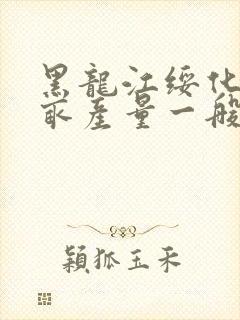 黑龍江綏化
畝產量一般
穎狐玉禾